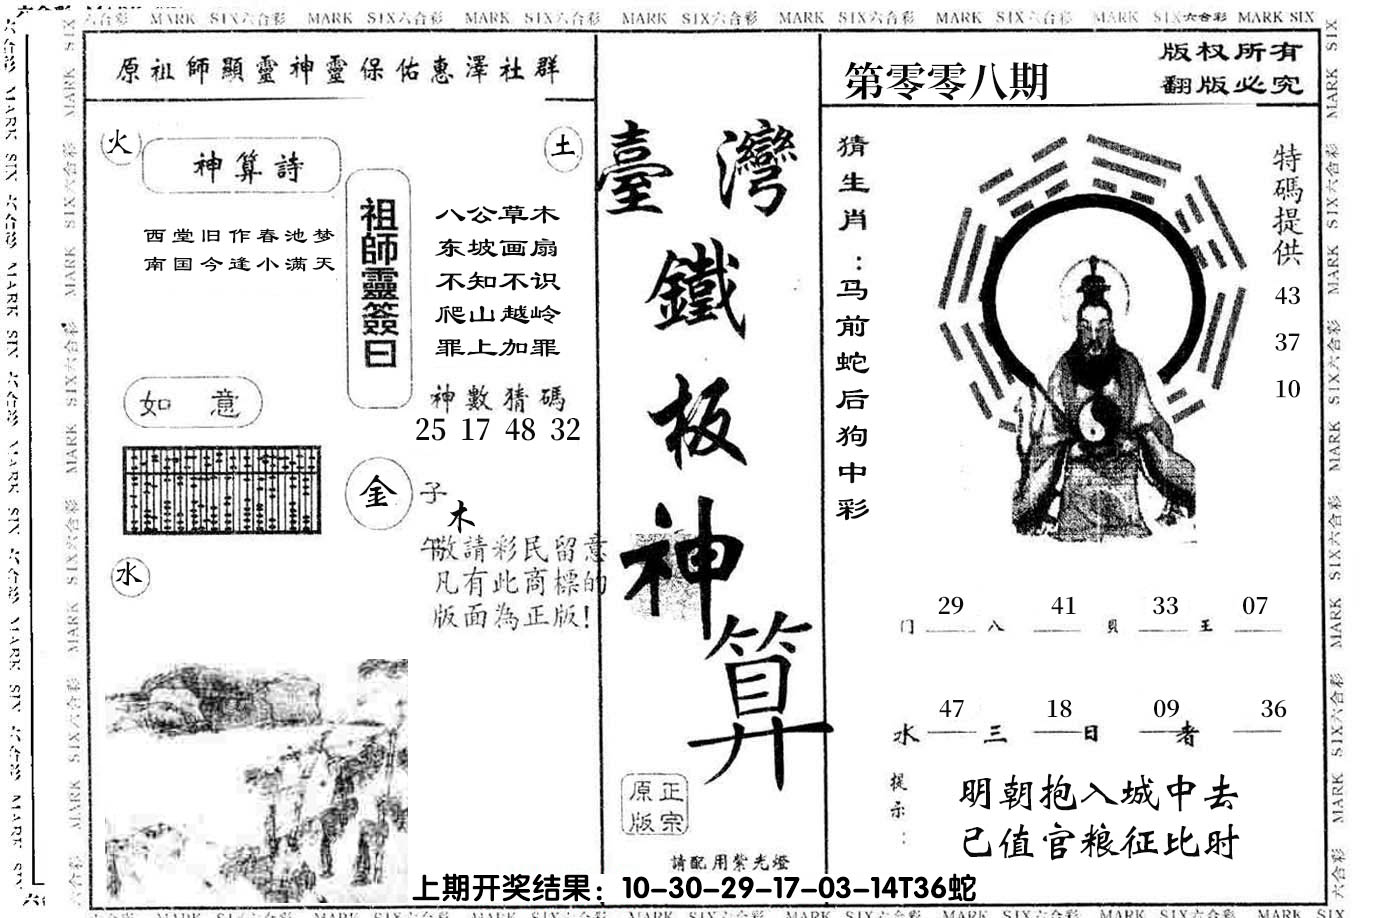 MARK SIX六合彩 MARK SIX六合彩 MARK SIX六合彩 MARK SIX六合彩 MARK SIX六合彩 MARK SIX六合彩 MARK SIX六合彩 MARK SIX
原祖師顯靈神靈保佑惠澤社群
火
神算詩
土
西堂旧作春池梦
南国今逢小满天
祖師靈簽曰
八公草木
东坡画扇
不知不识
爬山越岭
罪上加罪
神數猜碼
25 17 48 32
如意
金
子
木
午
敬請彩民留意
凡有此商標的
版面為正版!
水
臺灣
鐵
板
神
算
正宗
原版
請配用紫光燈
第零零八期
版权所有
翻版必究
猜生肖:马前蛇后狗中彩
特碼提供
43
37
10
29 41 33 07
门 八 貝 王
47 18 09 36
水 三 日 者
提示:
明朝抱入城中去
已值官粮征比时
上期开奖结果：10-30-29-17-03-14T36蛇